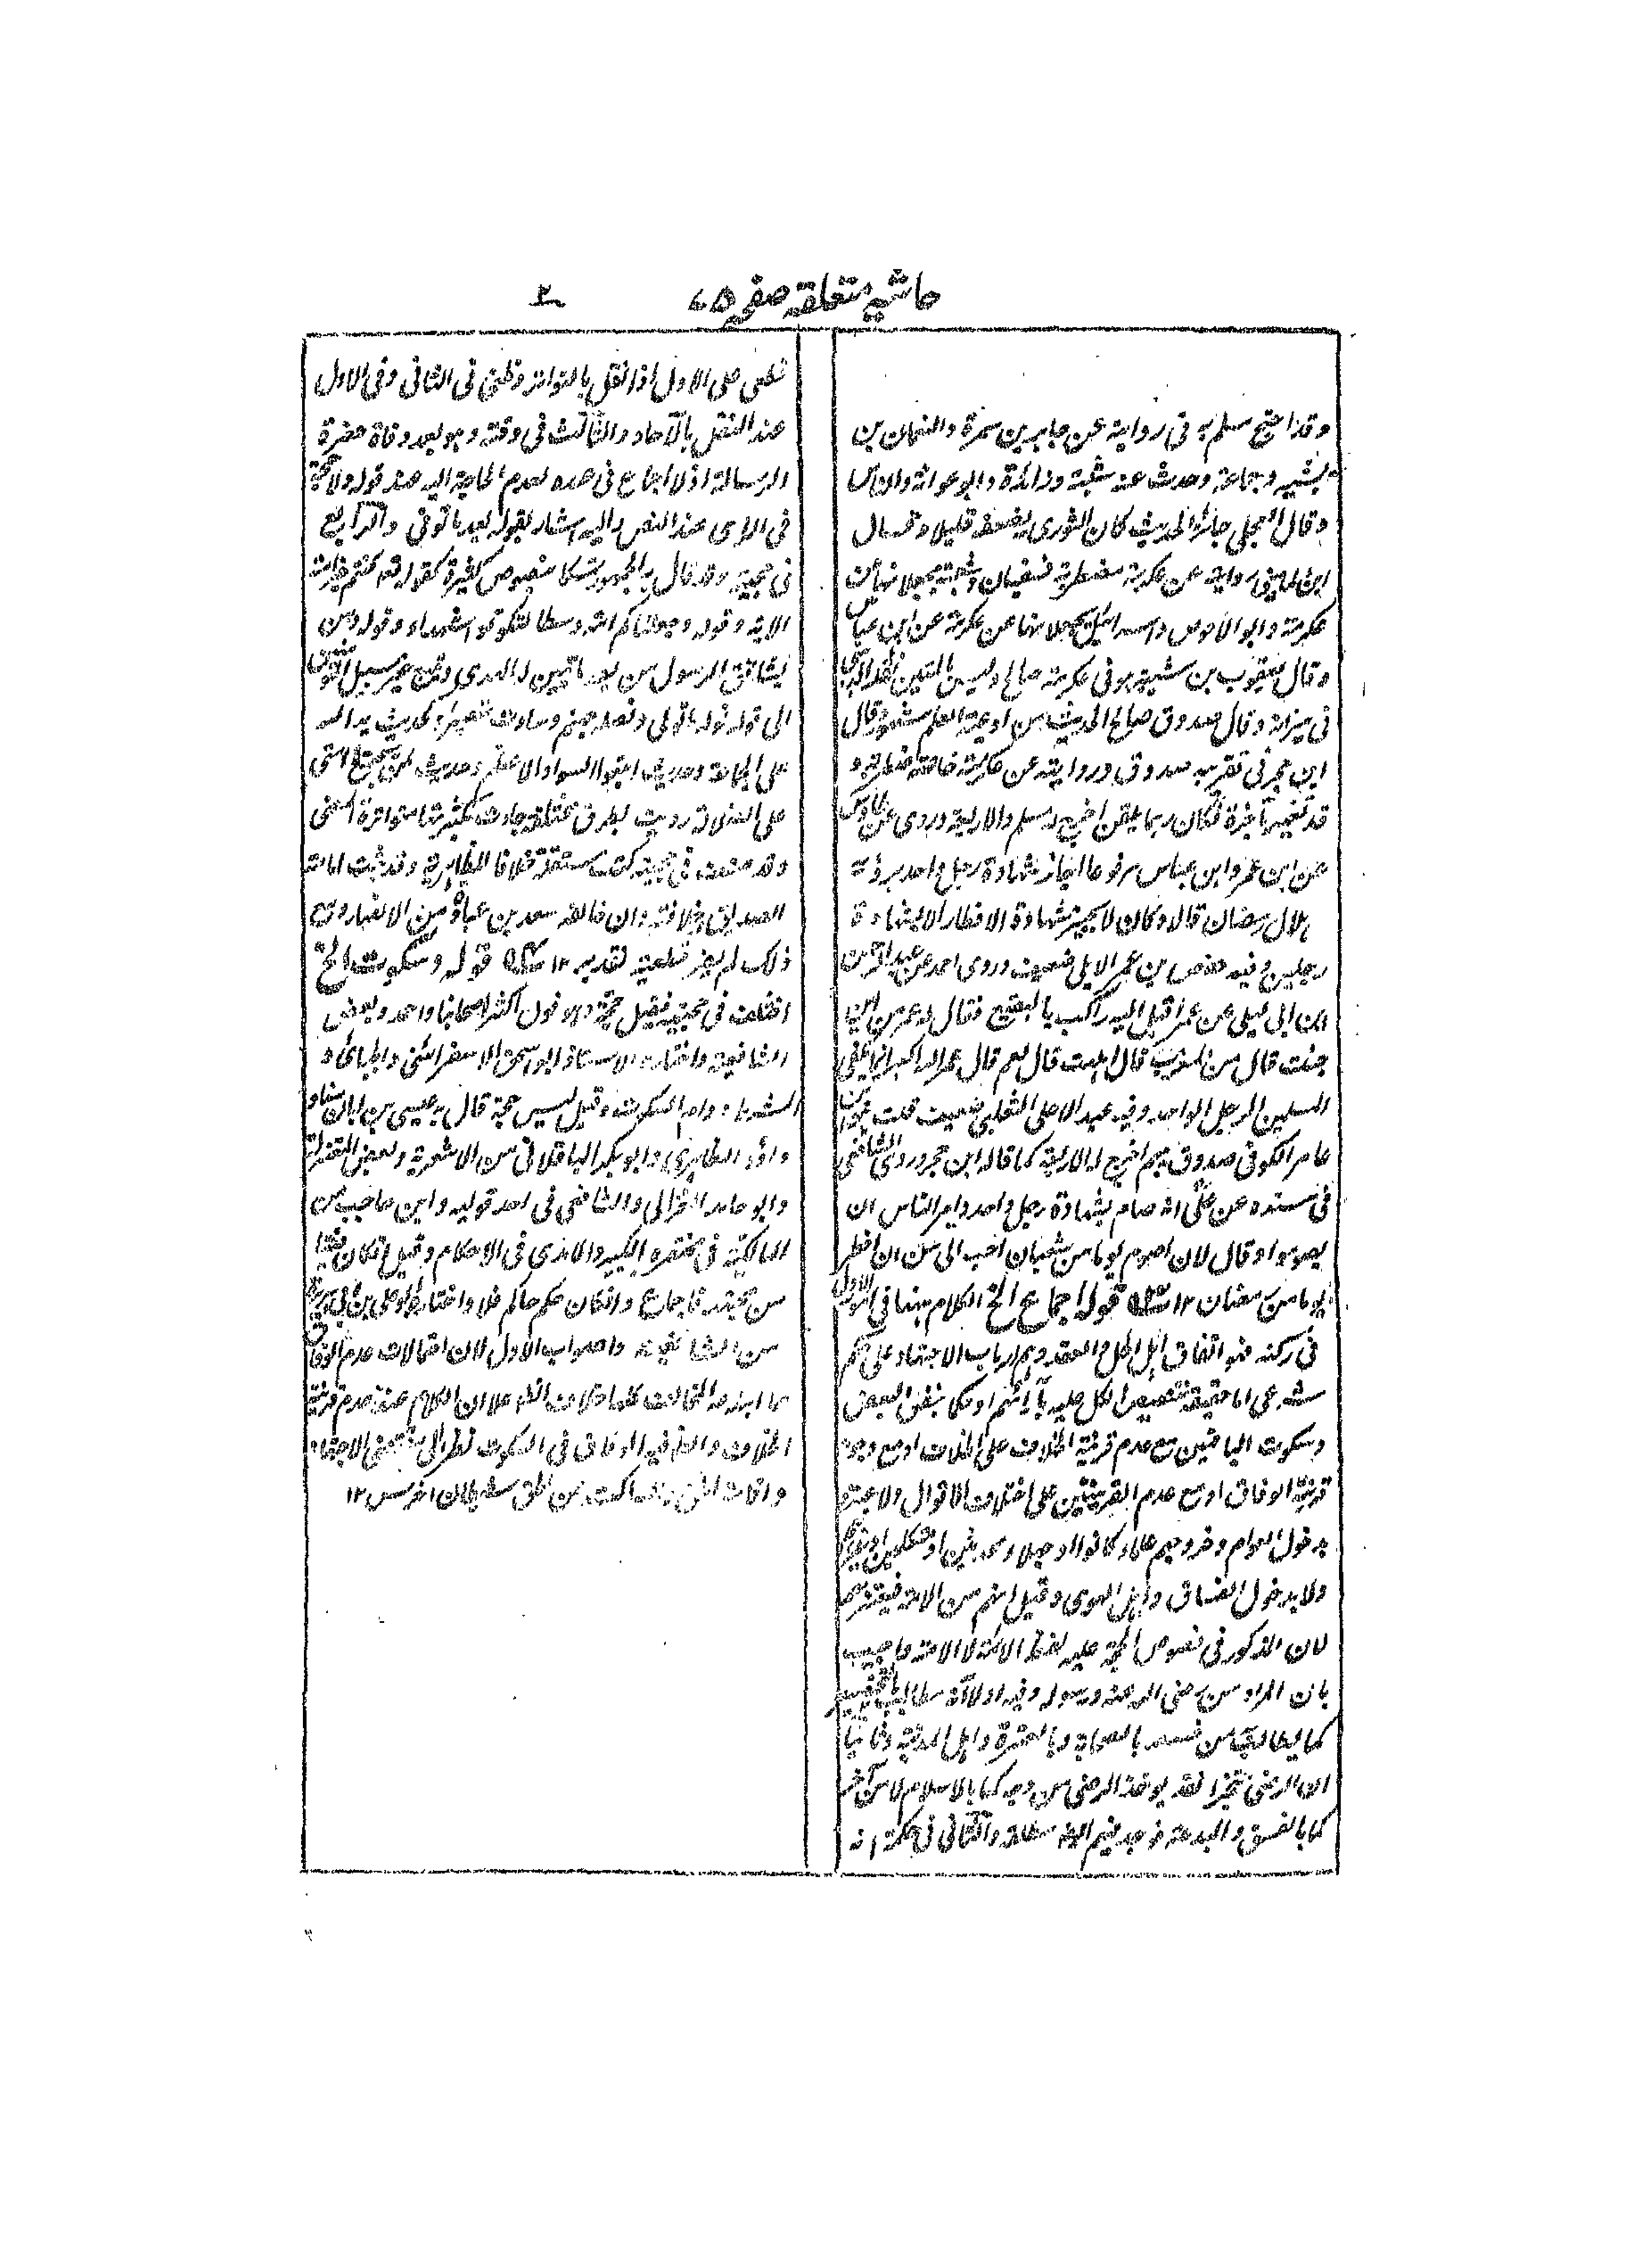 حاشیہ متعلقہ صفحہ ۷۵
۲
وقد احتج مسلم به في رواية عن جابر بن سمرة والنعمان بن
بشير وجماعة وحدث عنه شعبة وزائدة وابو عوانة والناس
وقال العجلي جائز الحديث كان الثوري يضعفه قليلا وقال
ابن المديني رواية عن عكرمة مضطربة فسفيان وشعبة يجعلانها عن
عكرمة وابو الاحوص واسرائيل يجعلانها عن عكرمة عن ابن عباس
وقال يعقوب بن شيبة هو في عكرمة صالح وليس بالمتين
في ميزانه وقال صدوق صالح الحديث من اوعية العلم مشهور وقال
ابن حجر في تقريبه صدوق وروايته عن عكرمة خاصة مضطربة و
قد تغير بآخرة فكان ربما يلقن اخرج له مسلم والاربعة وروى عن طاؤس
عن ابن عمر وابن عباس مرفوعا اجاز شهادة رجل واحد برؤية
هلال رمضان قالا وكان لا يجيز شهادة الافطار الا بشهادة
رجلين وفيه حفص بن عمر الايلي ضعيف وروى احمد عن عبد الرحمن
ابن ابي ليلى عن عمر اقبل اليه راكب بالبقيع فقال له عمر من اين
جئت قال من المغرب قال اهللت قال نعم قال عمر الله اكبر انما يكفي
المسلمين الرجل الواحد وفيه عبد الاعلى الثعلبي ضعيف قلت
عامر الكوفي صدوق يهم اخرج له الاربعة كما قاله ابن حجر وروى الشافعي
في مسنده عن علي انه صام بشهادة رجل واحد وامر الناس ان
يصوموا وقال لان اصوم يوما من شعبان احب الي من ان افطر
يوما من رمضان ۱۲ قوله اجماع الخ الكلام ههنا في امور الاول
في ركنه فهو اتفاق اهل الحل والعقد وهم ارباب الاجتهاد على حكم
شرعي اما حقيقة بتنصيص الكل عليه بآرائهم او حكما بنص البعض
وسكوت الباقين مع عدم قرينة الخلاف على الخلاف او مع وجود
قرينة الوفاق او مع عدم القرينتين على اختلاف الاقوال ولا عبرة
بدخول العوام وخروجهم علماء كانوا او جهلا ومحدثين او متكلمين او غيرهم
ولا بدخول الفساق واهل الهوى وقيل انهم من الامة فيعتبر
لان المذكور في نصوص الحجة عليه لفظ الامة لا الائمة واجيب
بان المراد من رضي الله عنه ورسوله وفيه اولا انه
كما يطالب من خصصه بالصحابة وبالعترة واهل المدينة وثانيا
ان الرضى يتجزأ فقد يوجد الرضى من وجه كما بالاسلام لا من آخر
كما بالفسق والبدعة فوجد فيهم الرضى مطلقا والثاني في حكمه انه
قطعي على الاول اذا نقل بالتواتر وظني في الثاني وفي الاول
عند النقل بالآحاد والثالث في وقته وهو بعد وفاة حضرة
الرسالة اذ لا اجماع في عهده لعدم الحاجة اليه عند قوله ولا حجة
في الرأي عند النص واليه اشار بقوله بعد ما توفي والرابع
في حجيته وقد قال به الجمهور تمسكا بنصوص كثيرة كقوله تع كنتم خير امة
الاية وقوله وجعلناكم امة وسطا لتكونوا شهداء وقوله ومن
يشاقق الرسول من بعد ما تبين له الهدى ويتبع غير سبيل المؤمنين
الى قوله نوله ما تولى ونصله جهنم وساءت مصيرا وكحديث يد الله
على الجماعة وحديث اتبعوا السواد الاعظم وحديث لن تجتمع امتي
على الضلالة رويت بطرق مختلفة صارت بكثرتها متواترة المعنى
وقد صنفت في حجيته كتب مستقلة خلافا للظاهرية وقد ثبت امامة
الصديق وخلافته وان خالفه سعد بن عبادة من الانصار ومع
ذلك لم يضر قطعيته تقديره ۱۲ قوله وسكوت الخ
اختلف في حجيته فقيل حجة وهو قول اكثر اصحابنا واحمد وبعض
الشافعية واختاره الاستاذ ابو اسحق الاسفرائني والجبائي و
اشترط دوام السكوت وقيل ليس حجة قال به عيسى بن ابان منا و
داؤد الظاهري وابو بكر الباقلاني من الاشعرية وبعض المعتزلة
وابو حامد الغزالي والشافعي في احد قوليه وابن حاجب من
المالكية في مختصره الكبير والآمدي في الاحكام وقيل ان كان فتيا
من مجتهد فاجماع وان كان حكم حاكم فلا واختاره ابو علي بن ابي هريرة
من الشافعية والصواب الاول لان احتمالات عدم الوفاق
مما ابداه المخالف كلها خلاف الظاهر لان الكلام عند عدم قرينة
الخلاف والظاهر فيه الوفاق في السكوت نظرا الى مقتضى الاجتهاد
واخفاء الحق والساكت عن الحق شيطان اخرس ۱۲